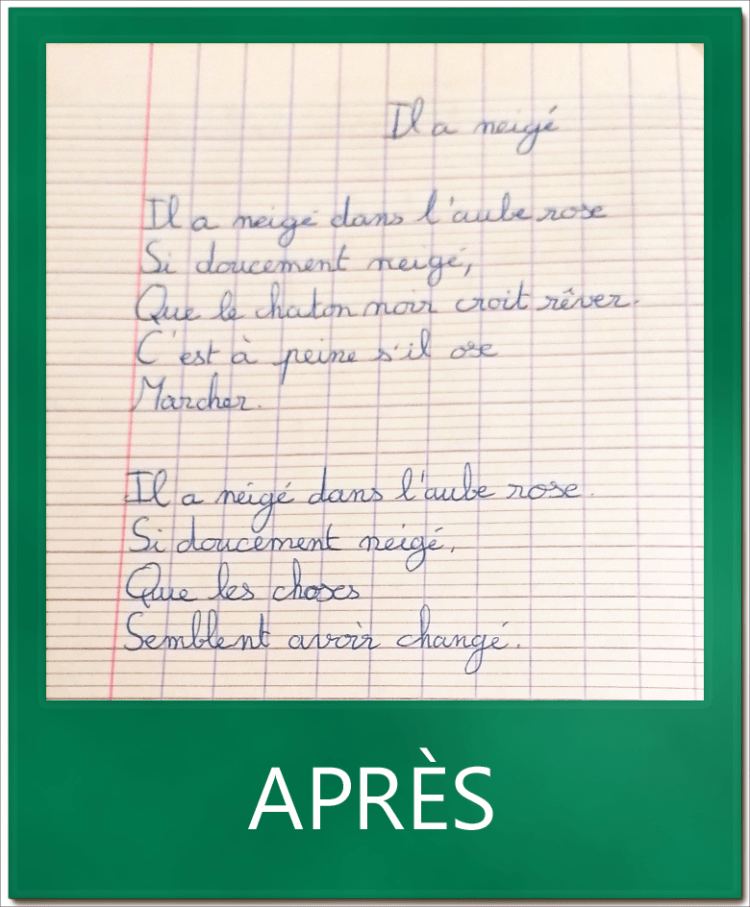 Il a neigé
Il a neigé dans l'aube rose
Si doucement neigé,
Que le chaton noir croit rêver.
C'est à peine s'il ose
Marcher.
Il a neigé dans l'aube rose.
Si doucement neigé,
Que les choses
Semblent avoir changé.
APRÈS